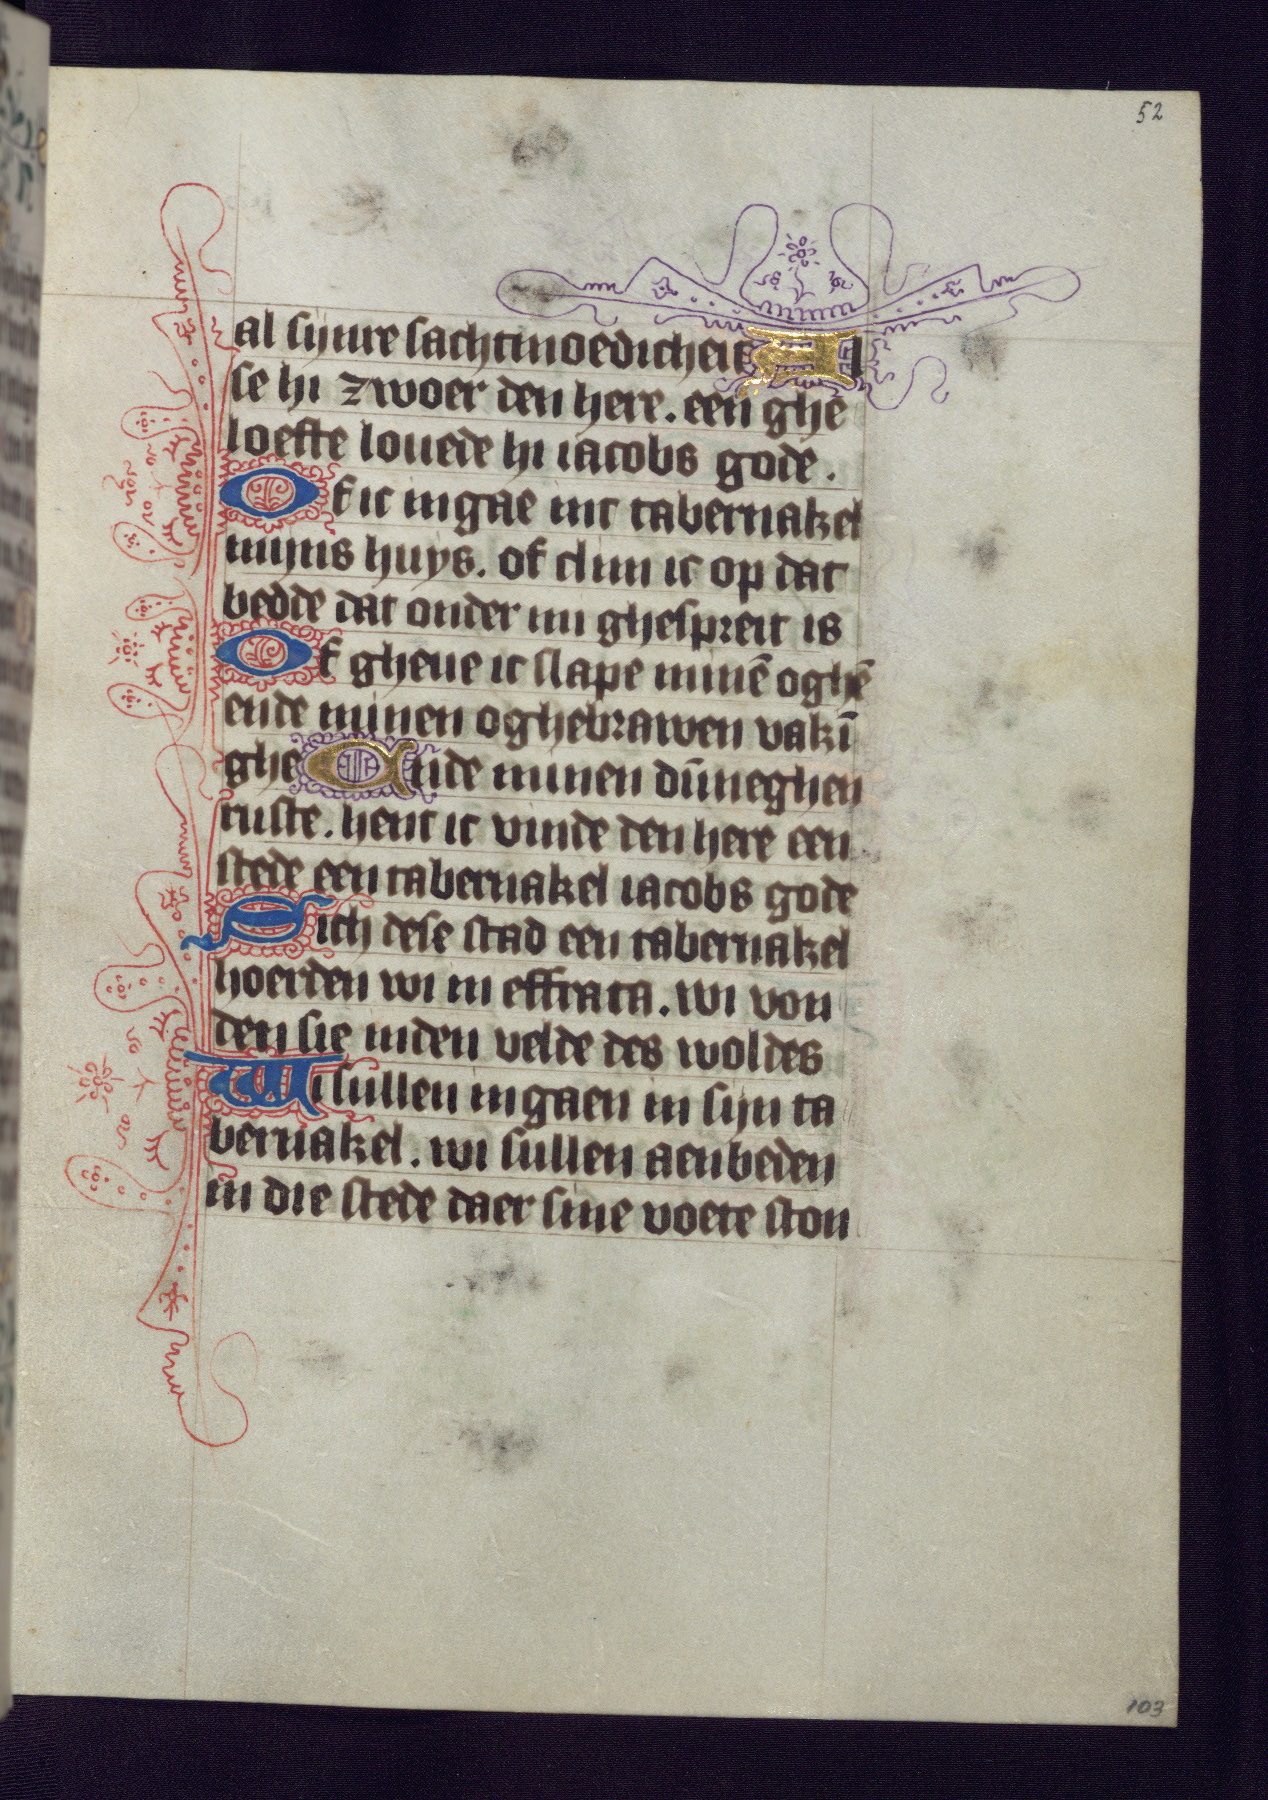 52
al sijnre sachtmoedicheit Al
se hi zwoer den here. een ghe
loefte louede hi iacobs gode.
Of ic ingae int tabernakel
mijns huys. of clim ic op dat
bedde dat onder mi ghespreit is
Of gheue ic slape minē oghē
ende minen oghebrawen vakī
ghe Ende minen dūneghen
ruste. hent ic vinde den here een
stede een tabernakel iacobs gode
Sich dese stad een tabernakel
hoerden wi in effrata. wi von
den sie inden velde des woldes
Wi sullen ingaen in sijn ta
bernakel. wi sullen aenbeden
in die stede daer sine voete ston
103